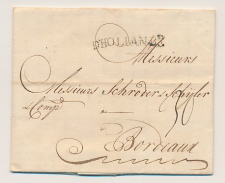 D'HOLLANDE
Messieurs
Messieurs Schröder & Schÿler
& Comp.
Bordeaux